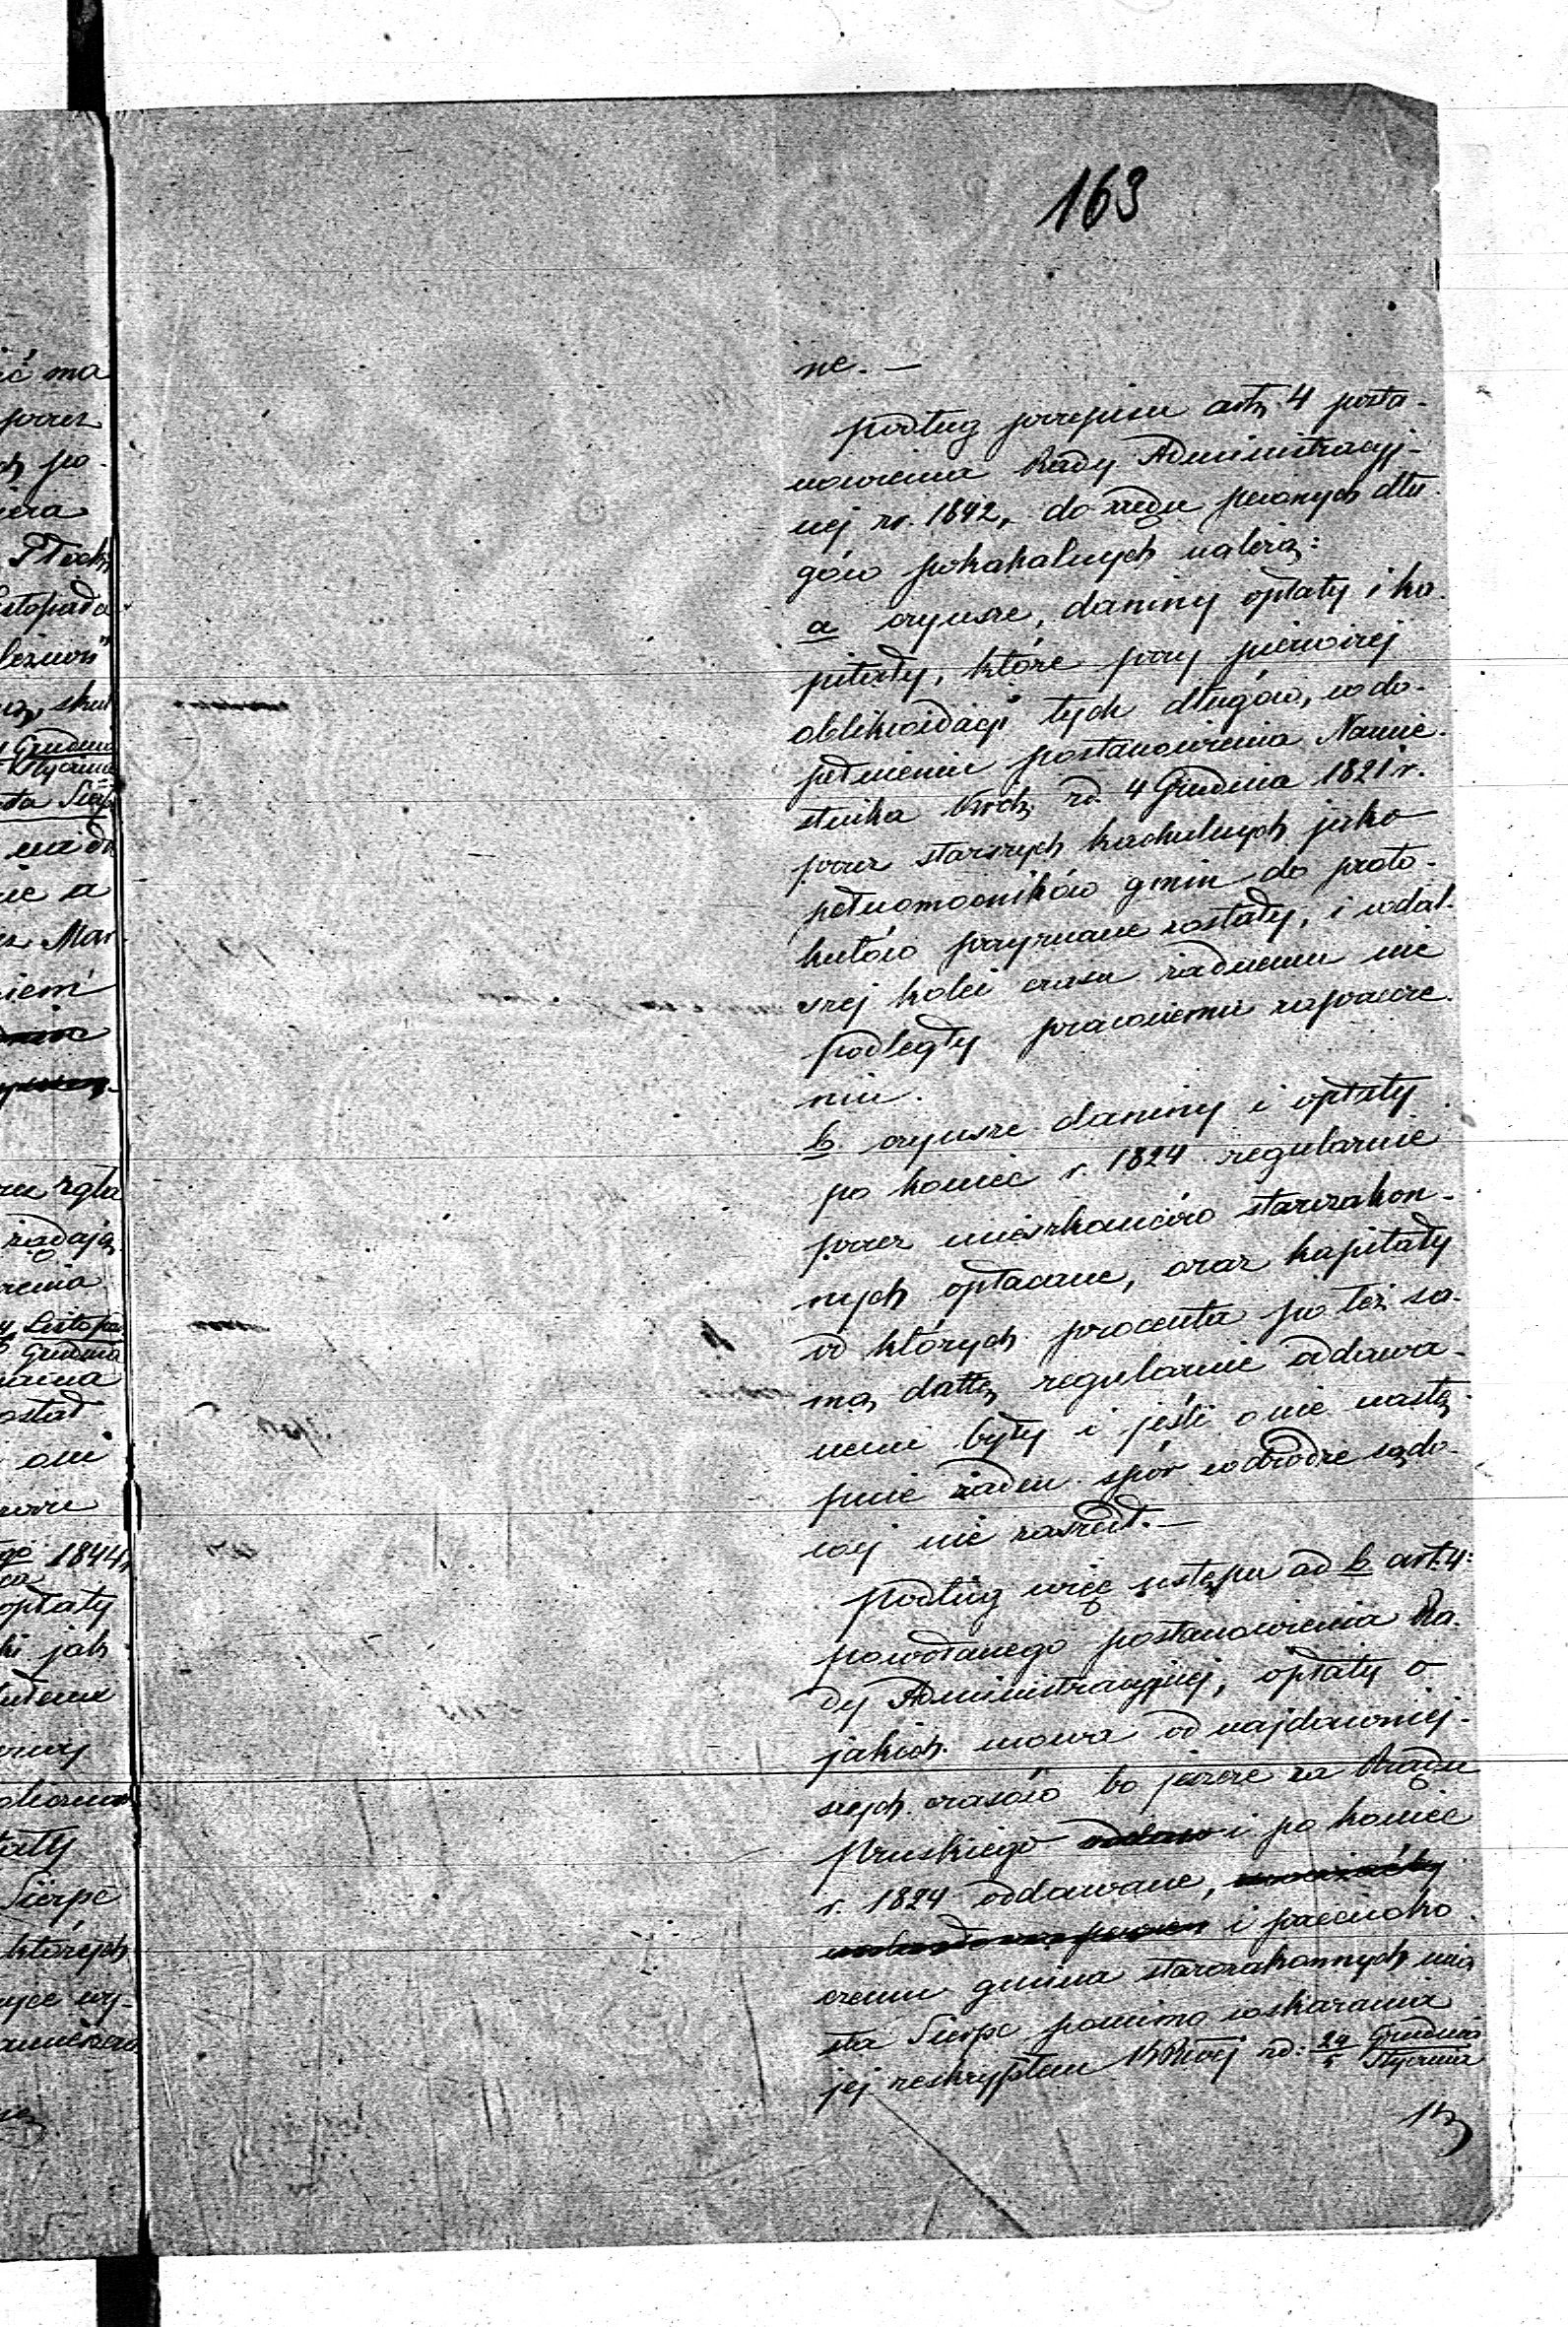 163
ne. —
podług przepisu art. 4 posta-
nowienia Rady Administracyj-
nej z r. 1842, do rzędu pewnych dłu-
gów pokahalnych należą:
a czynsze, daniny opłaty i ka-
pitały, które przy pierwszej
oblikwidacji tych długów, w do-
pełnieniu postanowienia Namie-
stnika Król. zd. 4 Grudnia 1821 r.
przez starszych kachalnych jako
pełnomocników gmin do proto-
kułów przyznane zostały, i w dal-
szej kolei czasu żadnemu nie
podległy prawnemu zaprzecze-
niu.
b. czynsze daniny i opłaty
po koniec r. 1824 regularnie
przez mieszkańców starozakon-
nych opłacane, oraz kapitały
od których procenta po też sa-
mą dattę regularnie oddawa-
nemi były i jeśli o nie nastę-
pnie żaden spór w drodze sądo-
wej nie zaszedł. —
podług więc ustępu ad b art. 4:
powołanego postanowienia Ra-
dy Administracyjnej, opłaty o
jakich mowa od najdawniej-
szych czasów bo jeszcze za Rządu
Pruskiego i po koniec
r. 1824 oddawane,
i przeciwko
czemu gmina starozakonnych mia-
sta Sierpc pomimo wskazania
jej reskryptem zd: 24/5 Grudnia/Stycznia
ić ma
przez
ch po-
iera
Płock
istopada
leżnoś
Grudnia
Stycznia
nie a
ez Mar
niem
żądają
Listopa
Grudnia
został
oni
1844
opłaty
ki jak
Sierpc
których
wy-